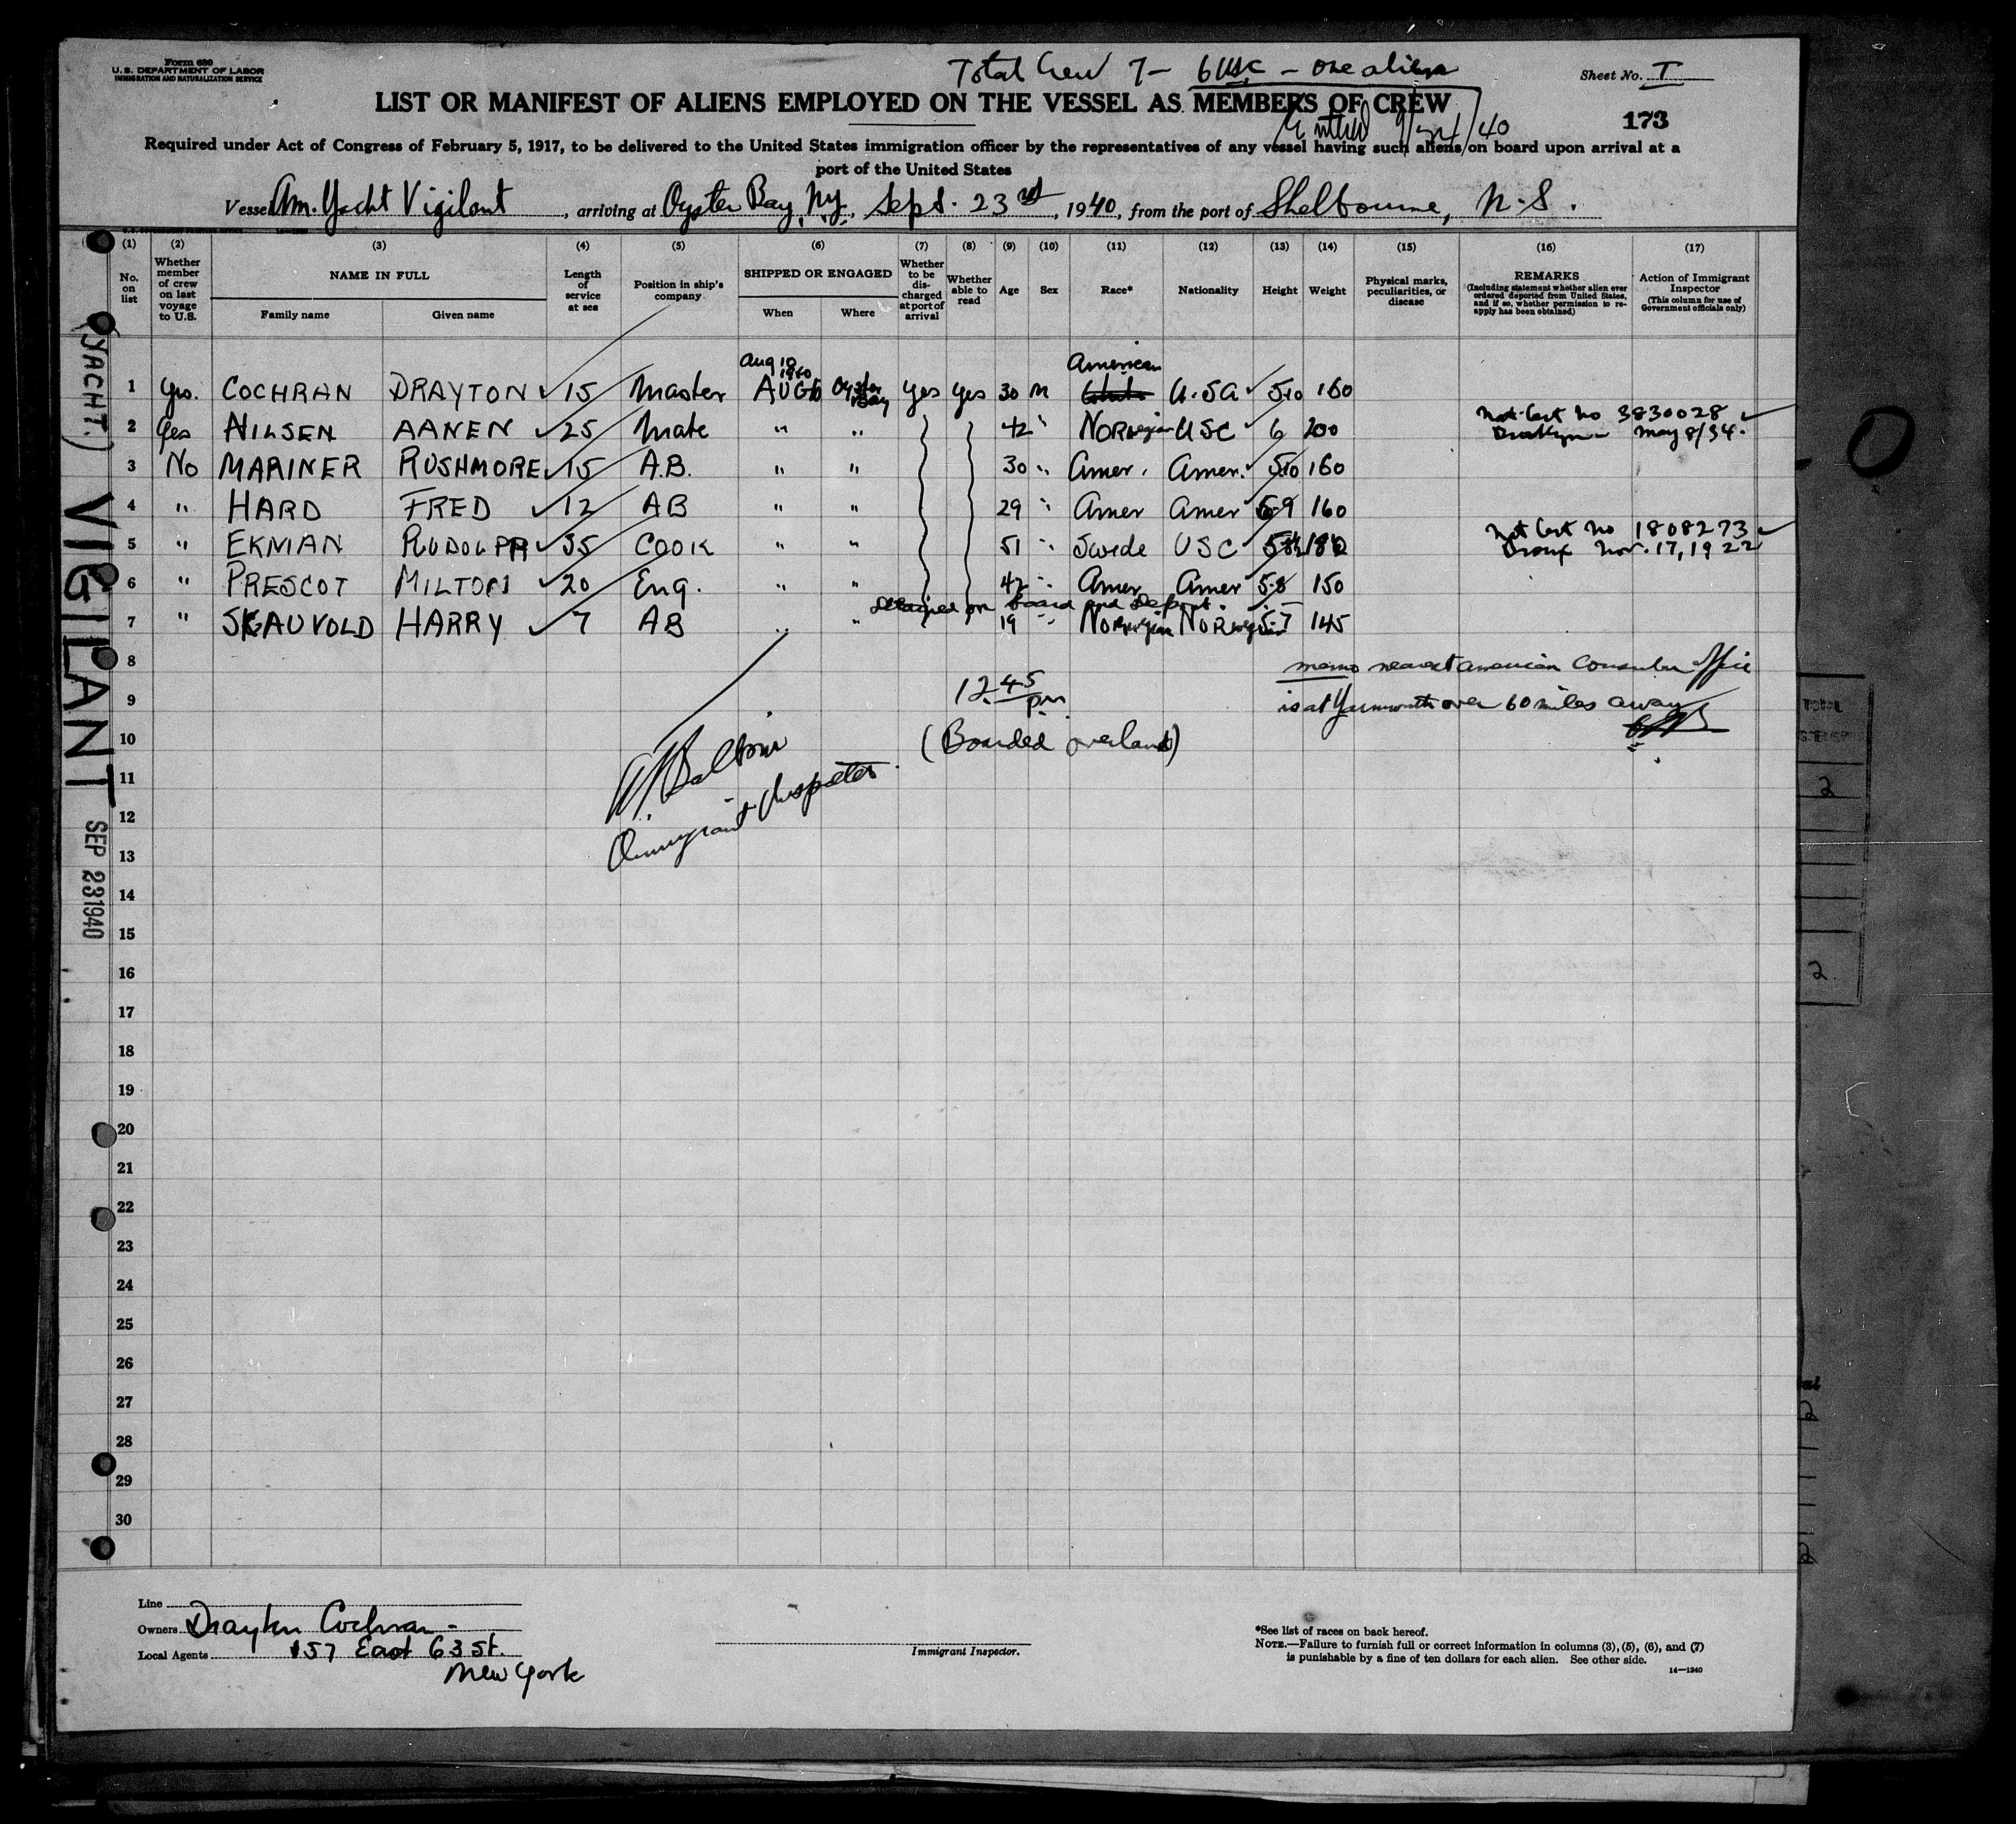 Form 680
U. S. DEPARTMENT OF LABOR
IMMIGRATION AND NATURALIZATION SERVICE
Total Crew 7 – 6 USC – one alien
Sheet No. I
LIST OR MANIFEST OF ALIENS EMPLOYED ON THE VESSEL AS MEMBERS OF CREW
173
Required under Act of Congress of February 5, 1917, to be delivered to the United States immigration officer by the representatives of any vessel having such aliens on board upon arrival at a
port of the United States
Vessel Am. Yacht Vigilant, arriving at Oyster Bay, N.Y., Sept. 23rd, 1940, from the port of Shelbourne, N.S.
(1) (2) (3) (4) (5) (6) (7) (8) (9) (10) (11) (12) (13) (14) (15) (16) (17)
No. on list
Whether member of crew on last voyage to U.S.
NAME IN FULL
Family name
Given name
Length of service at sea
Position in ship's company
SHIPPED OR ENGAGED
When
Where
Whether to be discharged at port of arrival
Whether able to read
Age
Sex
Race*
Nationality
Height
Weight
Physical marks, peculiarities, or disease
REMARKS
(Including statement whether alien ever ordered deported from United States, and if so, whether permission to reapply has been obtained)
Action of Immigrant Inspector
(This column for use of Government officials only)
1 Yes. COCHRAN DRAYTON 15 Master AUG Oyster Bay Yes Yes 30 M American U.S.A 5-10 160
2 Yes NILSEN AANEN 25 Mate " " 42 " NORwegian USC 6 200 Nat. Cert No 3830028 Brooklyn May 8/34.
3 No MARINER RUSHMORE 15 A.B. " " 30 " Amer. Amer. 5-10 160
4 " HARD FRED 12 AB " " 29 " Amer Amer 5-9 160
5 " EKMAN RUDOLPH 35 COOK " " 51 " Swede USC 5-8½ 180 Nat Cert No 1808273 Bronx Nov. 17, 1922
6 " PRESCOT MILTON 20 Eng. " " 42 " Amer Amer 5-8 150
Detained on board and Deport.
7 " SKAUVOLD HARRY 7 AB " " 19 " NORwegian NORwegian 5-7 145
8
memo nearest American Consular Office
9
12 45 pm
is at Yarmouth over 60 miles away
10
(Boarded overland)
11
Immigrant Inspector
12
13
14
15
16
17
18
19
20
21
22
23
24
25
26
27
28
29
30
(YACHT.) VIGILANT SEP 23 1940
Line
Owners Drayton Cochran -
Local Agents 157 East 63 St.
New York
Immigrant Inspector.
*See list of races on back hereof.
NOTE.—Failure to furnish full or correct information in columns (3), (5), (6), and (7)
is punishable by a fine of ten dollars for each alien. See other side.
14—1240
TOTAL
2
2